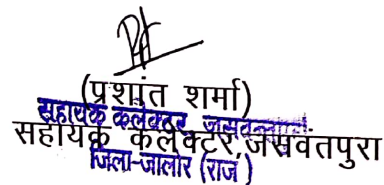 (प्रशांत शर्मा)
सहायक कलेक्टर, जसवन्तपुरा
सहायक कलेक्टर, जसवंतपुरा
जिला-जालोर (राज.)